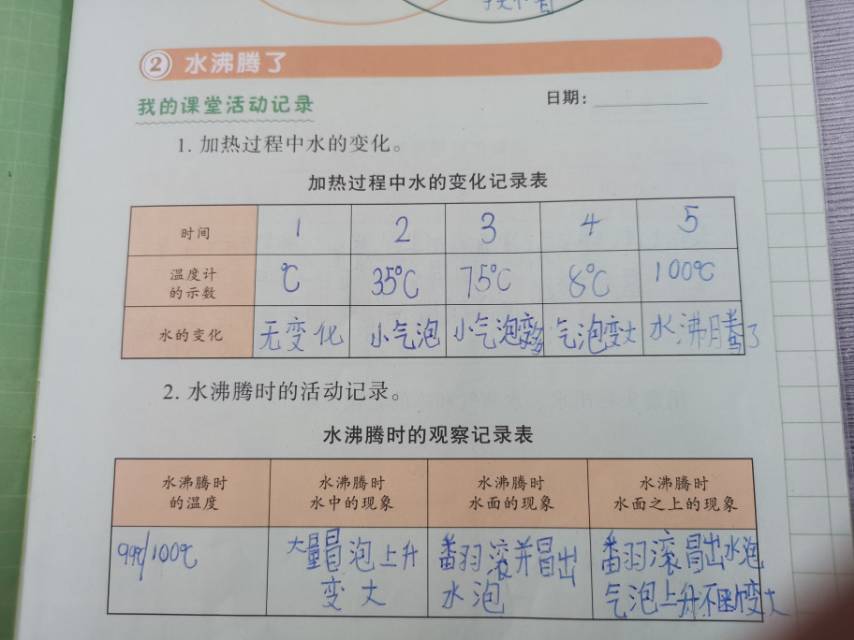 ② 水沸腾了
我的课堂活动记录
日期：
1. 加热过程中水的变化。
加热过程中水的变化记录表
时间 1 2 3 4 5
温度计的示数 ℃ 35℃ 75℃ 8℃ 100℃
水的变化 无变化 小气泡 小气泡变多 气泡变大 水沸腾了
2. 水沸腾时的活动记录。
水沸腾时的观察记录表
水沸腾时的温度 水沸腾时水中的现象 水沸腾时水面的现象 水沸腾时水面之上的现象
99℃/100℃ 大量冒泡上升变大 翻滚并冒出水泡 翻滚冒出水泡气泡上升不断变大